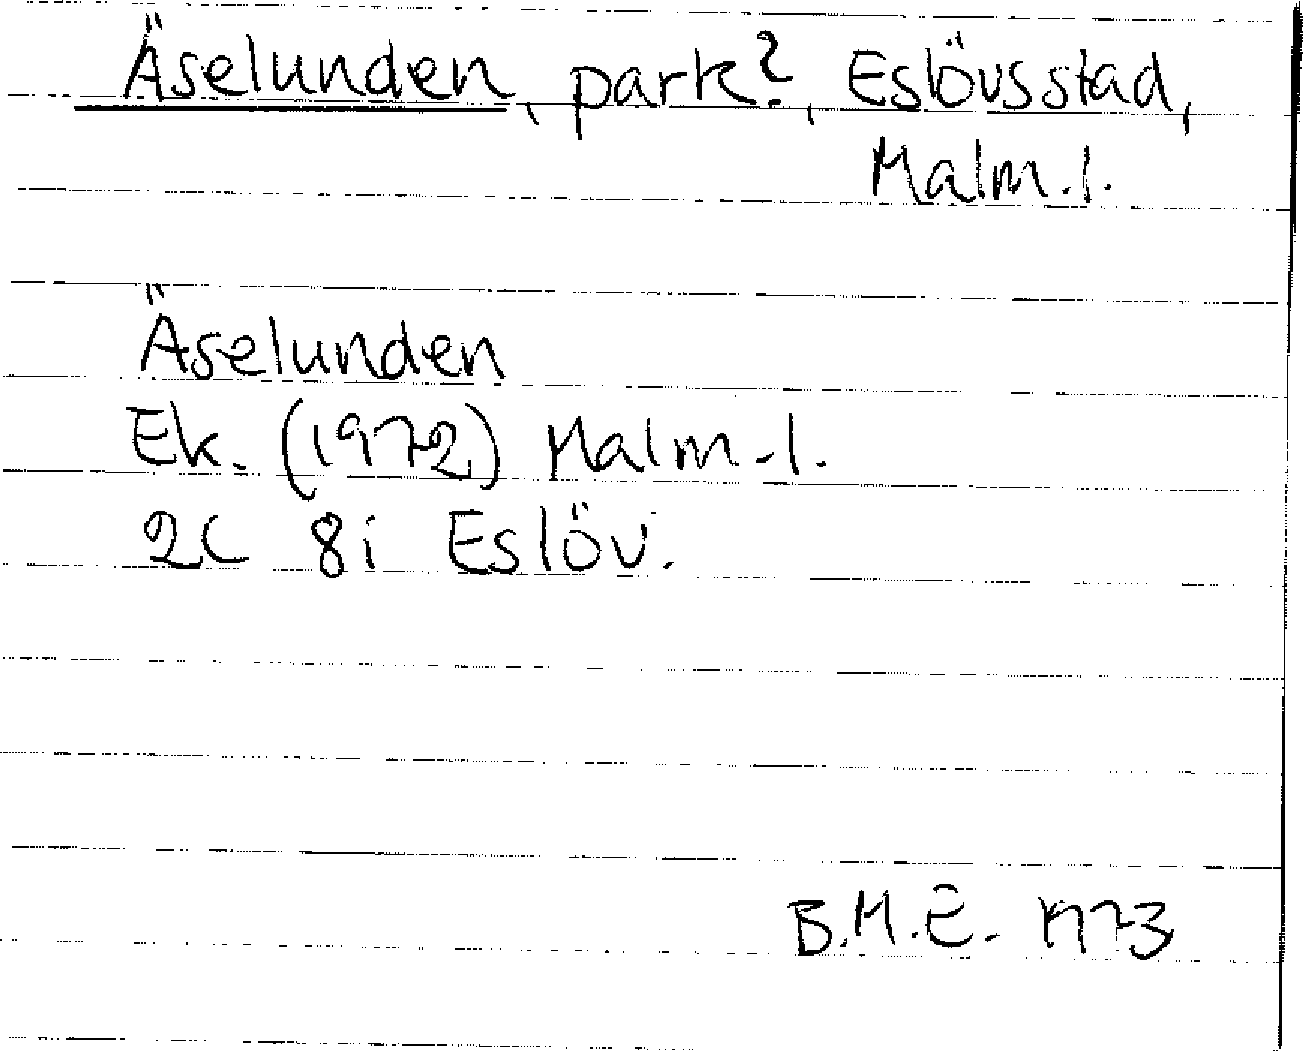 Äselunden, park?, Eslövs stad,
Malm.l.
Äselunden
Ek. (1972) Malm.l.
2C 8i Eslöv.
B.M.E. 1973